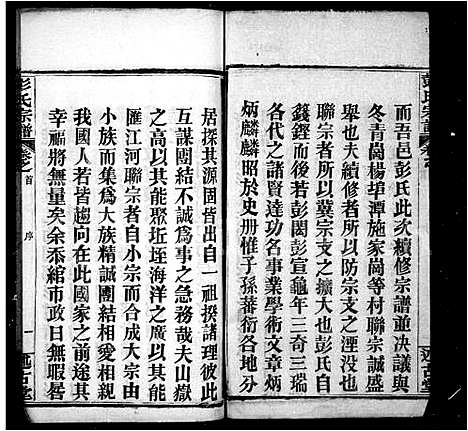 彭氏宗譜
而吾邑彭氏此次續修宗譜並决議與
冬青崗楊埠潭施家崗等村聯宗誠盛
舉也夫續修者所以防宗支之渭混
聯宗者所以冀宗支之擴大也彭氏自
籛鏗而後若彭閎彭宣龜年三奇三瑞
各代之諸賢達功名事業學術文章炳
炳麟麟昭於史册惟子孫蕃衍各地分
述古堂
居探其源固皆出自一祖揆諸理彼此
互謀團結不誠爲事之急務哉夫山嶽
之高以其能聚坵垤海洋之廣以其能
匯江河聯宗者自小宗而合成大宗由
小族而集爲大族精誠團結相愛相親
我國人若皆趨向在此國家之前途其
幸福將無量矣余忝綰市政日無暇晷
彭氏宗譜
卷首
序
一
述古堂